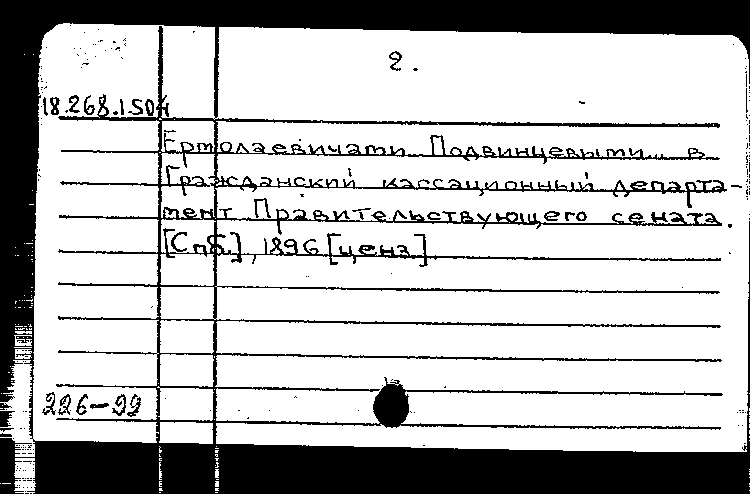 2.
18.268.1.504
Ермолаевичами Подвинцевыми в
Гражданский кассационный департа-
мент Правительствующего сената.
[Спб.], 1896 [ценз]
226-92